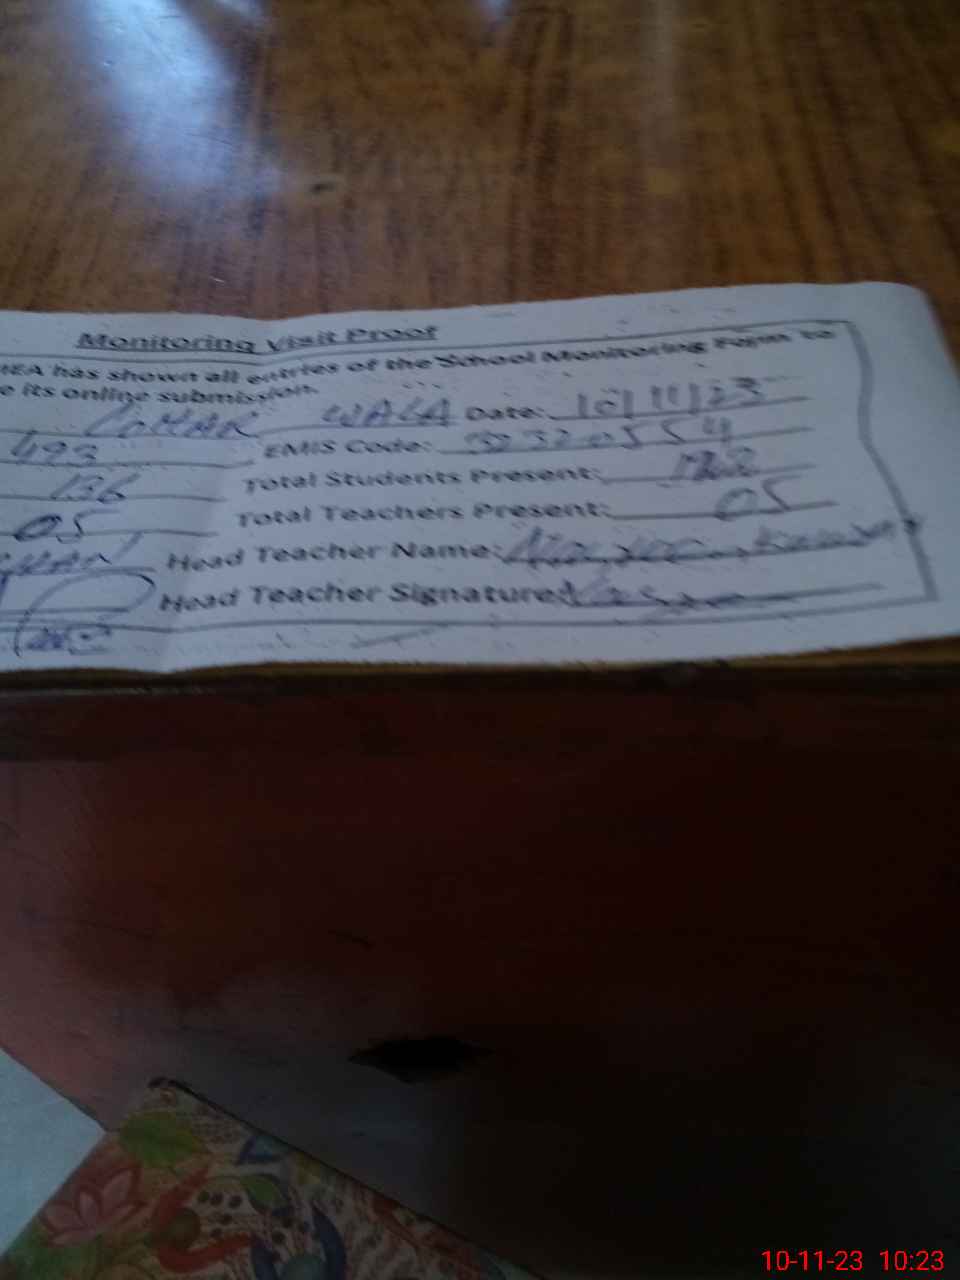 Monitoring Visit Proof
MEA has shown all entries of the School Monitoring Form to
e its online submission.
LOHAR WALA Date: 10/11/23
493 EMIS Code: 32320554
136 Total Students Present:
05 Total Teachers Present: 05
Head Teacher Name:
Head Teacher Signature:
10-11-23 10:23